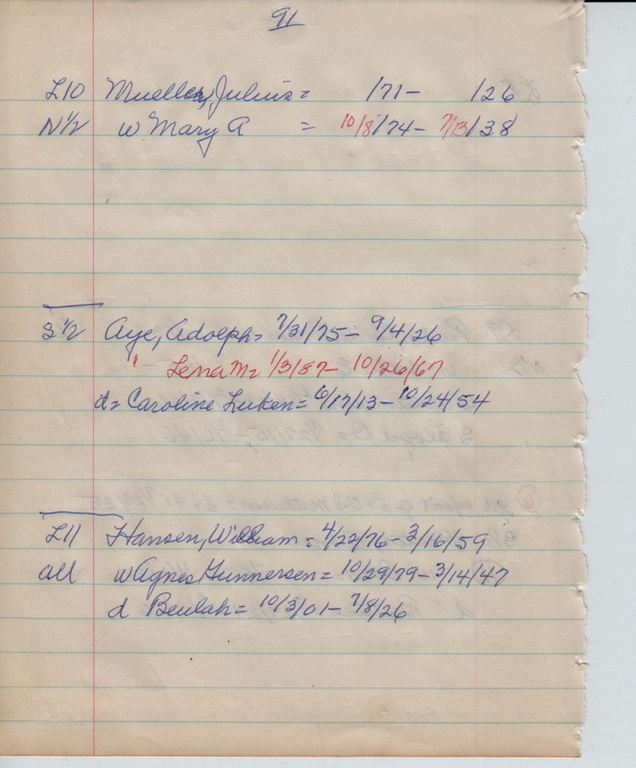 91
L10 Mueller, Julius = /71- /26
N 1/2 w Mary A = 10/8/74- 7/13/38
S 1/2 Aye, Adolph = 7/31/75- 9/4/26
" Lena M = 1/3/87- 10/26/67
d = Caroline Luken = 6/17/13- 10/24/54
L11 Hansen, William = 4/22/76- 3/16/59
all w Agnes Gunnersen = 10/29/79- 3/14/47
d Beulah = 10/3/01- 7/8/26